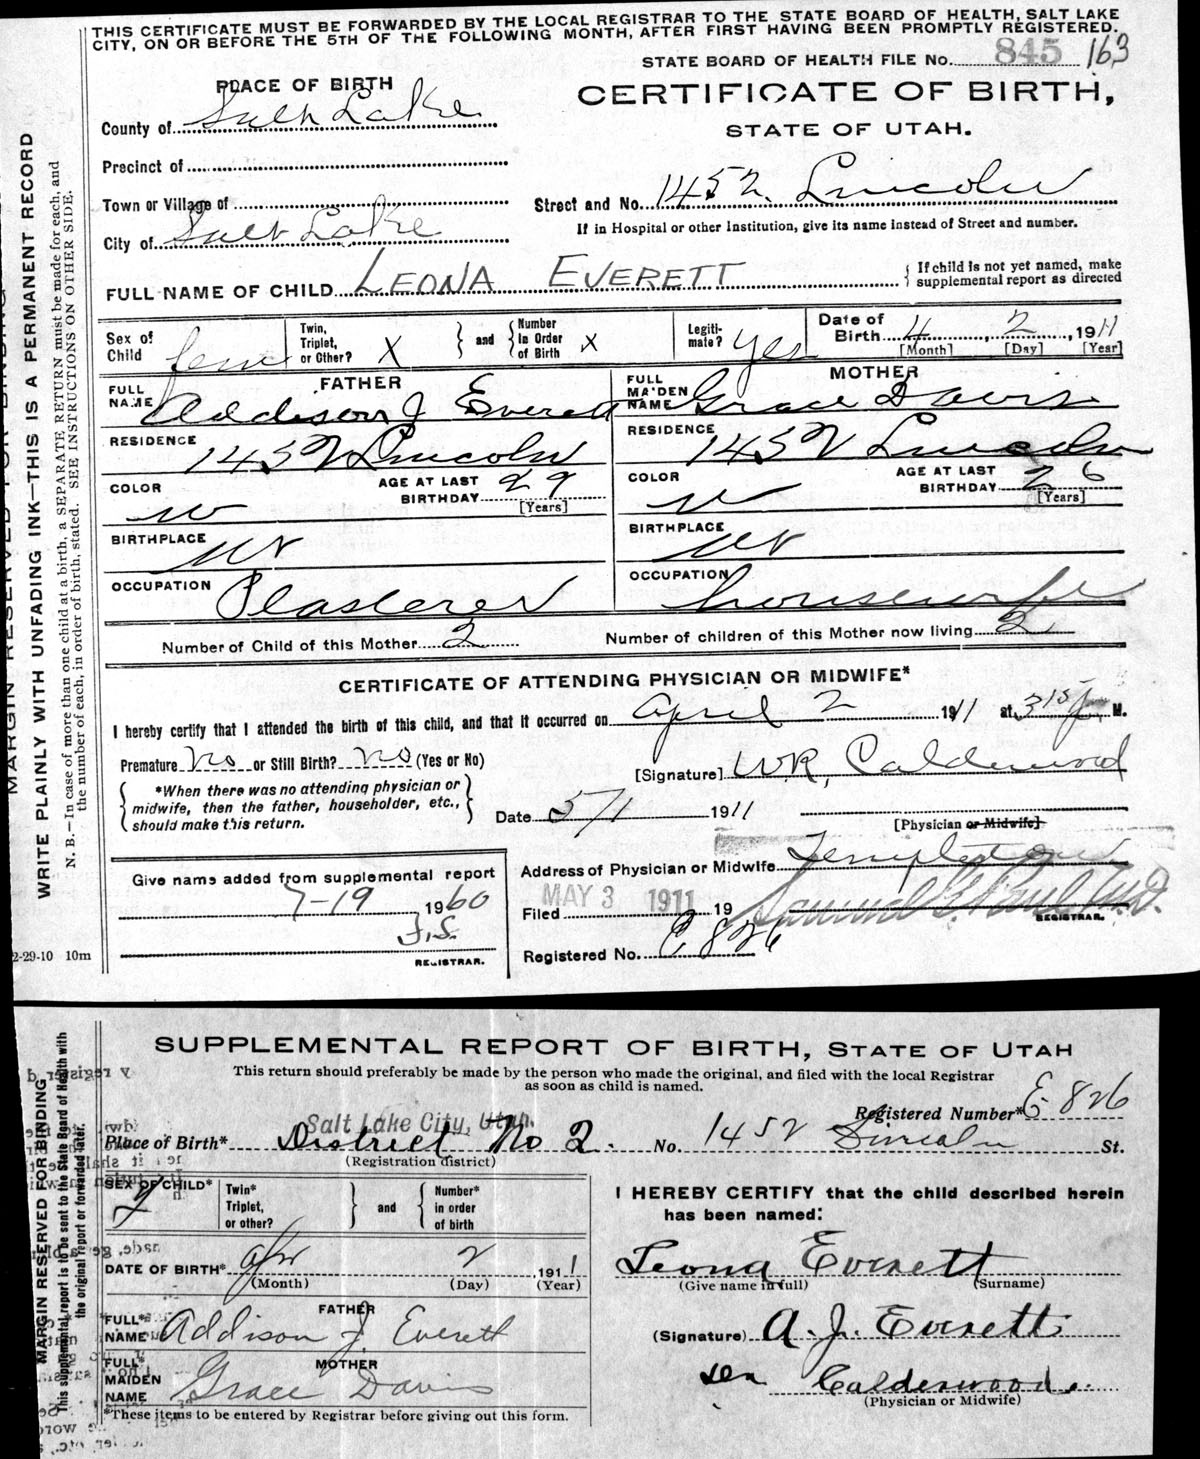 THIS CERTIFICATE MUST BE FORWARDED BY THE LOCAL REGISTRAR TO THE STATE BOARD OF HEALTH, SALT LAKE
CITY, ON OR BEFORE THE 5TH OF THE FOLLOWING MONTH, AFTER FIRST HAVING BEEN PROMPTLY REGISTERED.
STATE BOARD OF HEALTH FILE No. 845 163
PLACE OF BIRTH
CERTIFICATE OF BIRTH,
County of Salt Lake
STATE OF UTAH.
Precinct of
Town or Village of
Street and No. 1452 Lincoln
City of Salt Lake
If in Hospital or other Institution, give its name instead of Street and number.
FULL NAME OF CHILD LEONA EVERETT
{ If child is not yet named, make
supplemental report as directed
Sex of Child fem
Twin, Triplet, or Other? X
and
Number in Order of Birth X
Legiti-mate? Yes
Date of Birth 4 2, 1911
[Month] [Day] [Year]
FATHER
FULL NAME Addison J Everett
MOTHER
FULL MAIDEN NAME Grace Davis
RESIDENCE 1452 Lincoln
RESIDENCE 1452 Lincoln
COLOR w
AGE AT LAST BIRTHDAY 29
[Years]
COLOR w
AGE AT LAST BIRTHDAY 26
[Years]
BIRTHPLACE Ut
BIRTHPLACE Ut
OCCUPATION Plasterer
OCCUPATION housewife
Number of Child of this Mother 2
Number of children of this Mother now living 2
CERTIFICATE OF ATTENDING PHYSICIAN OR MIDWIFE*
I hereby certify that I attended the birth of this child, and that it occurred on April 2 1911 at 3 15 M.
Premature No or Still Birth? No (Yes or No)
[Signature] WR, Calderwood
{ *When there was no attending physician or
midwife, then the father, householder, etc.,
should make this return. }
Date 5/1 1911
[Physician or Midwife]
Address of Physician or Midwife Templeton
Give name added from supplemental report
7-19 1960
J.S.
REGISTRAR.
Filed MAY 3 1911 19
Samuel G. Paul M.D.
REGISTRAR.
Registered No. E 826
2-29-10 10m
WRITE PLAINLY WITH UNFADING INK—THIS IS A PERMANENT RECORD
N. B.—In case of more than one child at a birth, a SEPARATE RETURN must be made for each, and
the number of each, in order of birth, stated. SEE INSTRUCTIONS ON OTHER SIDE.
SUPPLEMENTAL REPORT OF BIRTH, STATE OF UTAH
This return should preferably be made by the person who made the original, and filed with the local Registrar
as soon as child is named.
Registered Number* E 826
Salt Lake City, Utah.
Place of Birth* District No 2. No. 1452 Lincoln St.
(Registration district)
SEX OF CHILD*
Twin* Triplet, or other?
and
Number* in order of birth
DATE OF BIRTH* Apr 2, 1911
(Month) (Day) (Year)
FATHER
FULL* NAME Addison J. Everett
MOTHER
FULL* MAIDEN NAME Grace Davis
*These items to be entered by Registrar before giving out this form.
I HEREBY CERTIFY that the child described herein
has been named:
Leona Everett
(Give name in full) (Surname)
(Signature) A. J. Everett
Calderwood
(Physician or Midwife)
MARGIN RESERVED FOR BINDING
This supplemental report is to be sent to the State Board of Health with
the original report or forwarded later.